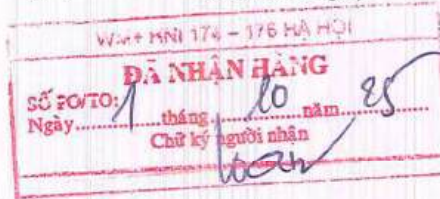 WM+ HNI 174 - 176 HÀ HỘI
ĐÃ NHẬN HÀNG
SỐ PO/TO:
Ngày 1 tháng 10 năm 25
Chữ ký người nhận